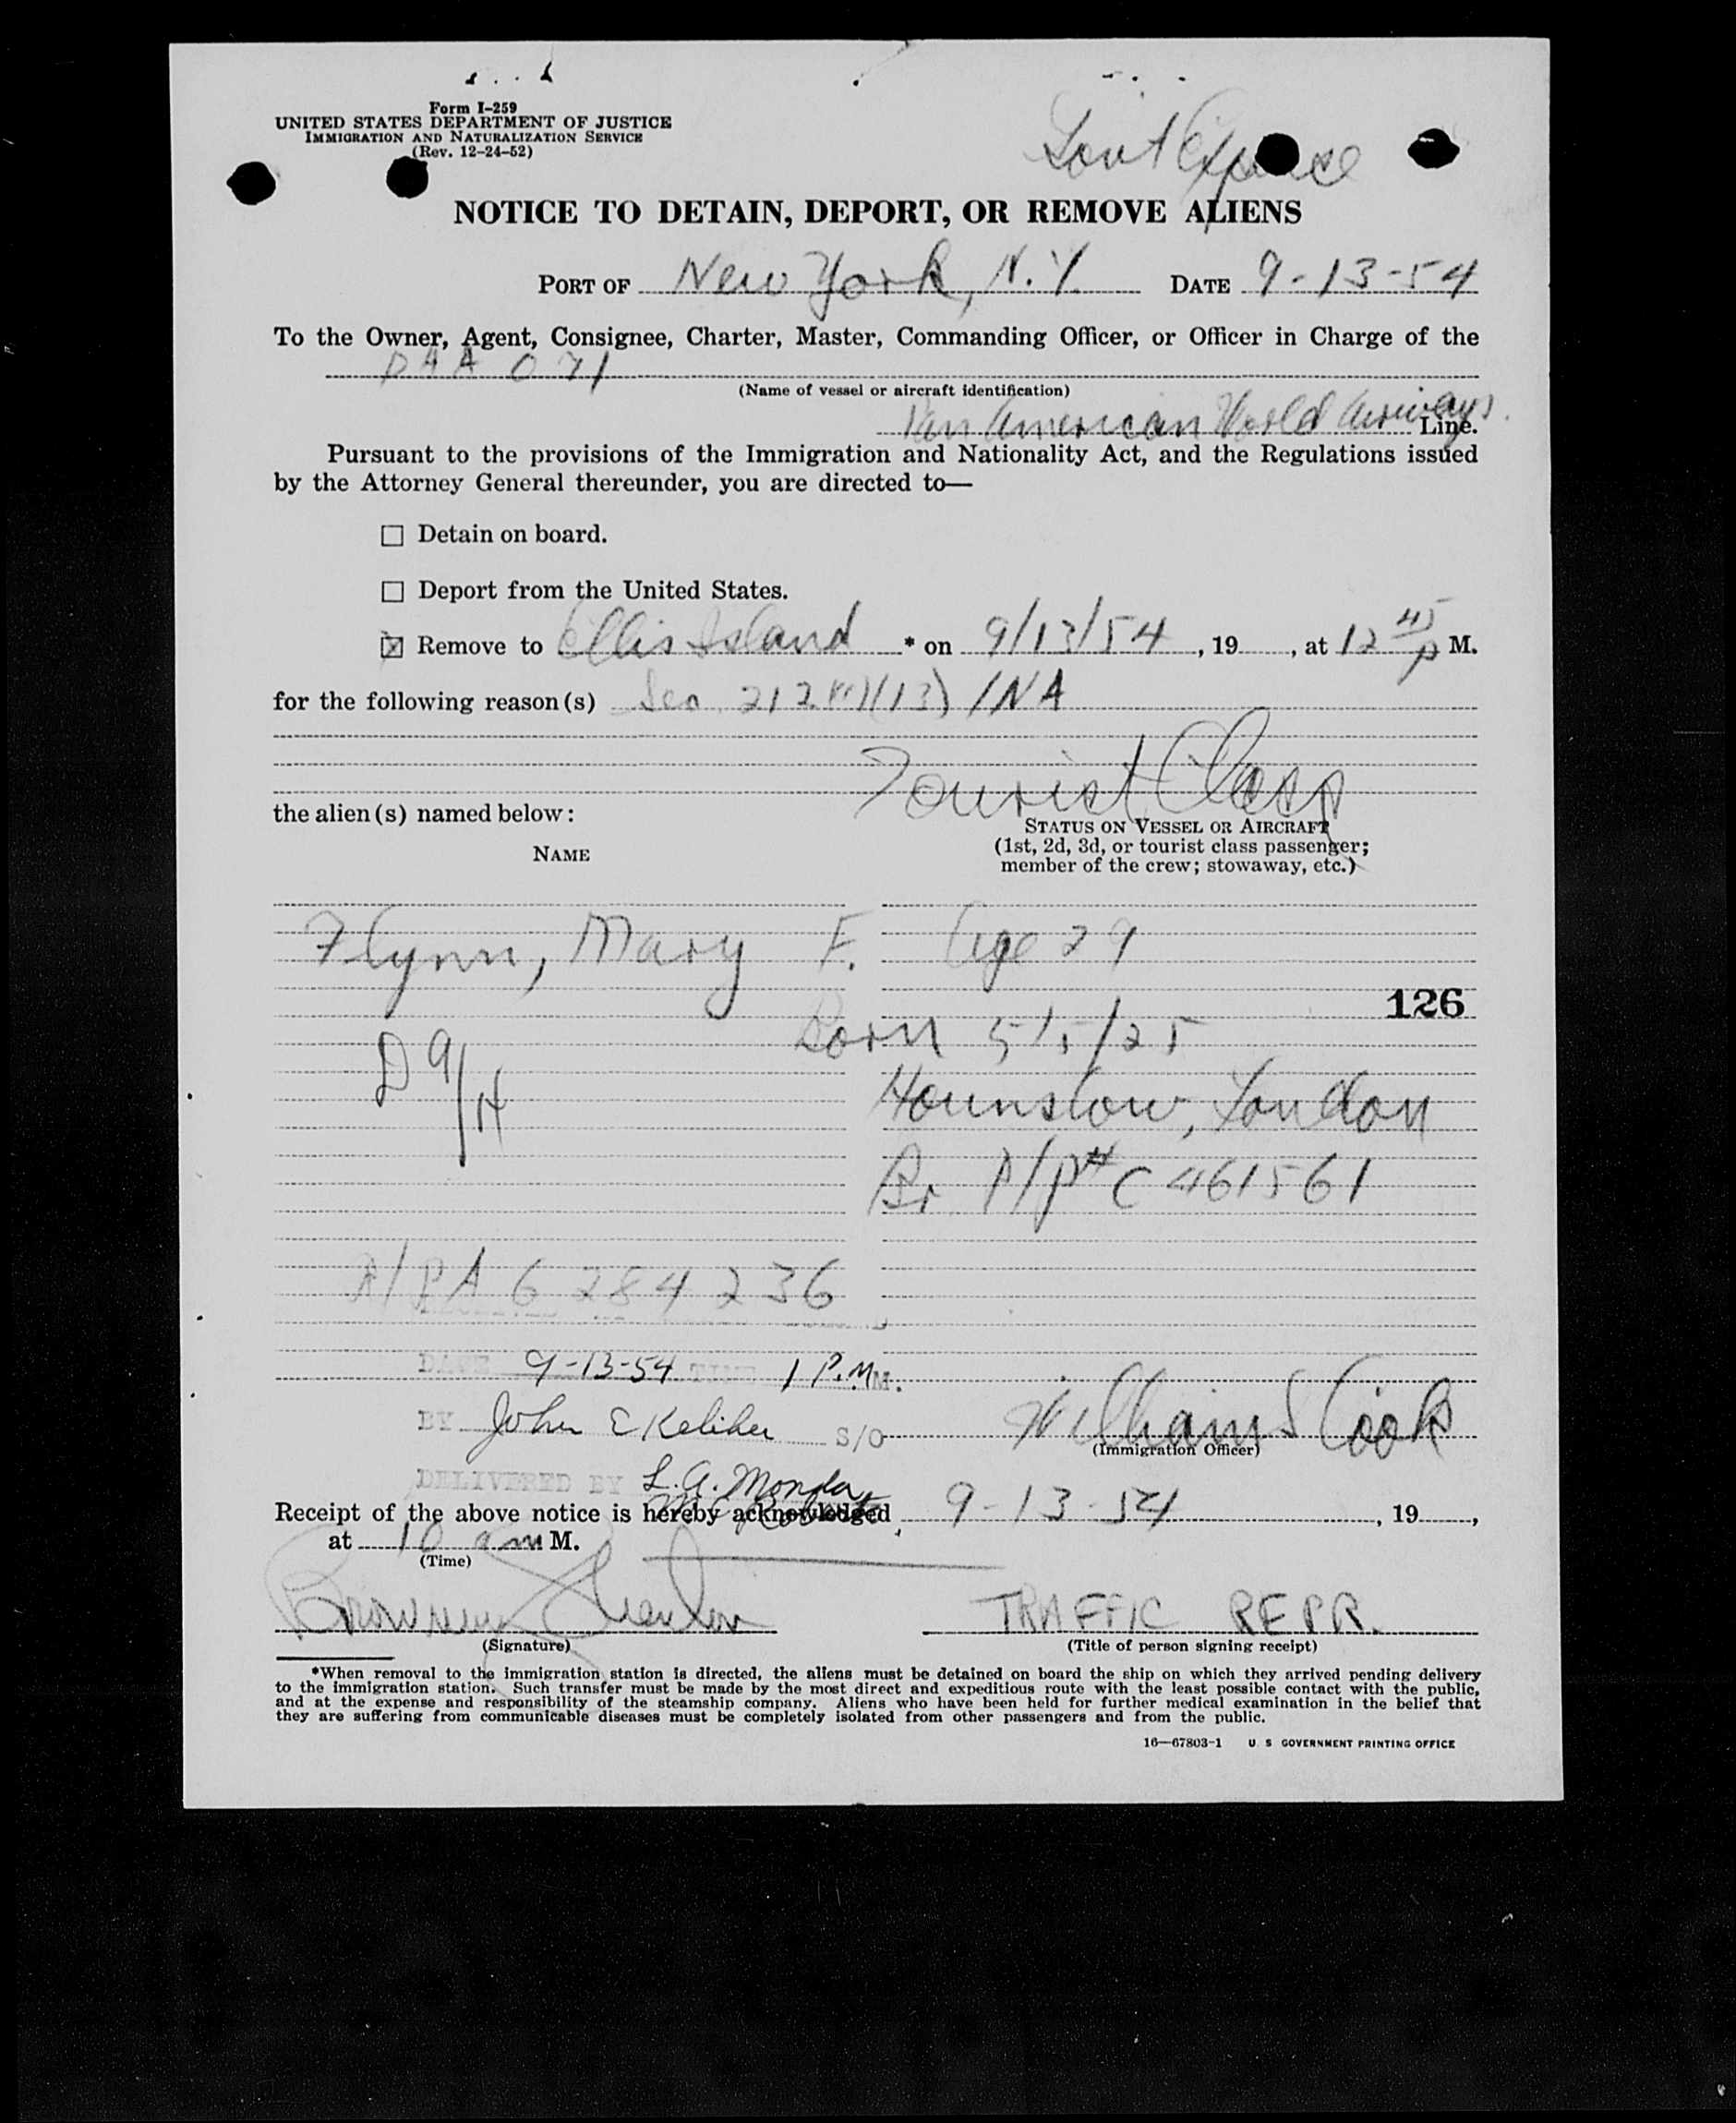 Form I-259
UNITED STATES DEPARTMENT OF JUSTICE
IMMIGRATION AND NATURALIZATION SERVICE
(Rev. 12-24-52)
Govt Expense
NOTICE TO DETAIN, DEPORT, OR REMOVE ALIENS
PORT OF New York, N.Y. DATE 9-13-54
To the Owner, Agent, Consignee, Charter, Master, Commanding Officer, or Officer in Charge of the
PAA 071
(Name of vessel or aircraft identification)
Pan American World Airways Line.
Pursuant to the provisions of the Immigration and Nationality Act, and the Regulations issued
by the Attorney General thereunder, you are directed to—
☐ Detain on board.
☐ Deport from the United States.
☒ Remove to Ellis Island * on 9/13/54, 19 , at 12 45 P M.
for the following reason(s) Sec 212 (13) INA
Tourist Class
the alien(s) named below:
STATUS ON VESSEL OR AIRCRAFT
(1st, 2d, 3d, or tourist class passenger;
member of the crew; stowaway, etc.)
NAME
Flynn, Mary F. Age 29
126
Born 5/5/25
D 9/14
Hounslow, London
Br P/P# C 461561
A/PA 6 284 236
DATE 9-13-54 TIME 1 P.M. M.
BY John E Keliher S/O
William S Cook
(Immigration Officer)
DELIVERED BY L.A. Monda
Receipt of the above notice is hereby acknowledged 9-13-54, 19 ,
at 10 am M.
(Time)
TRAFFIC REPR.
(Signature)
(Title of person signing receipt)
*When removal to the immigration station is directed, the aliens must be detained on board the ship on which they arrived pending delivery
to the immigration station. Such transfer must be made by the most direct and expeditious route with the least possible contact with the public,
and at the expense and responsibility of the steamship company. Aliens who have been held for further medical examination in the belief that
they are suffering from communicable diseases must be completely isolated from other passengers and from the public.
16—67803-1 U. S. GOVERNMENT PRINTING OFFICE